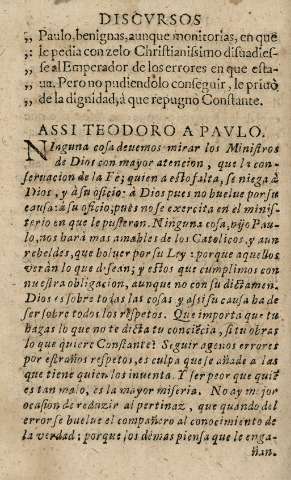 DISCVRSOS
„ Paulo, benignas, aunque monitorias, en que
„ le pedia con zelo Christianissimo disuadies-
„ se al Emperador de los errores en que esta-
„ ua. Pero no pudiendolo conseguir, le priuò
„ de la dignidad, à que repugno Constante.
ASSI TEODORO A PAVLO.
NInguna cosa deuemos mirar los Ministros
de Dios con mayor atencion, que la con-
seruacion de la Fe; quien a esto falta, se niega à
Dios, y à su oficio: à Dios pues no buelue por su
causa: à su oficio, pues no se exercita en el minis-
terio en que le pusieron. Ninguna cosa, hijo Pau-
lo, nos harà mas amables de los Catolicos, y aun
rebeldes, que boluer por su Ley: porque aquellos
veràn lo que desean; y estos que cumplimos con
nuestra obligacion, aunque no con su dictamen.
Dios es sobre todas las cosas y assi su causa ha de
ser sobre todos los respetos. Que importa que tu
hagas lo que no te dicta tu conciēcia, si tu obras
lo que quiere Constante? Seguir agenos errores
por estraños respetos, es culpa que se añade a las
que tiene quien los inuenta. Y ser peor que quiē
es tan malo, es la mayor miseria. No ay mejor
ocasion de reduzir al pertinaz, que quando del
error se buelue el compañero al conocimiento de
la verdad; porque los demas piensa que le enga-
ñan.